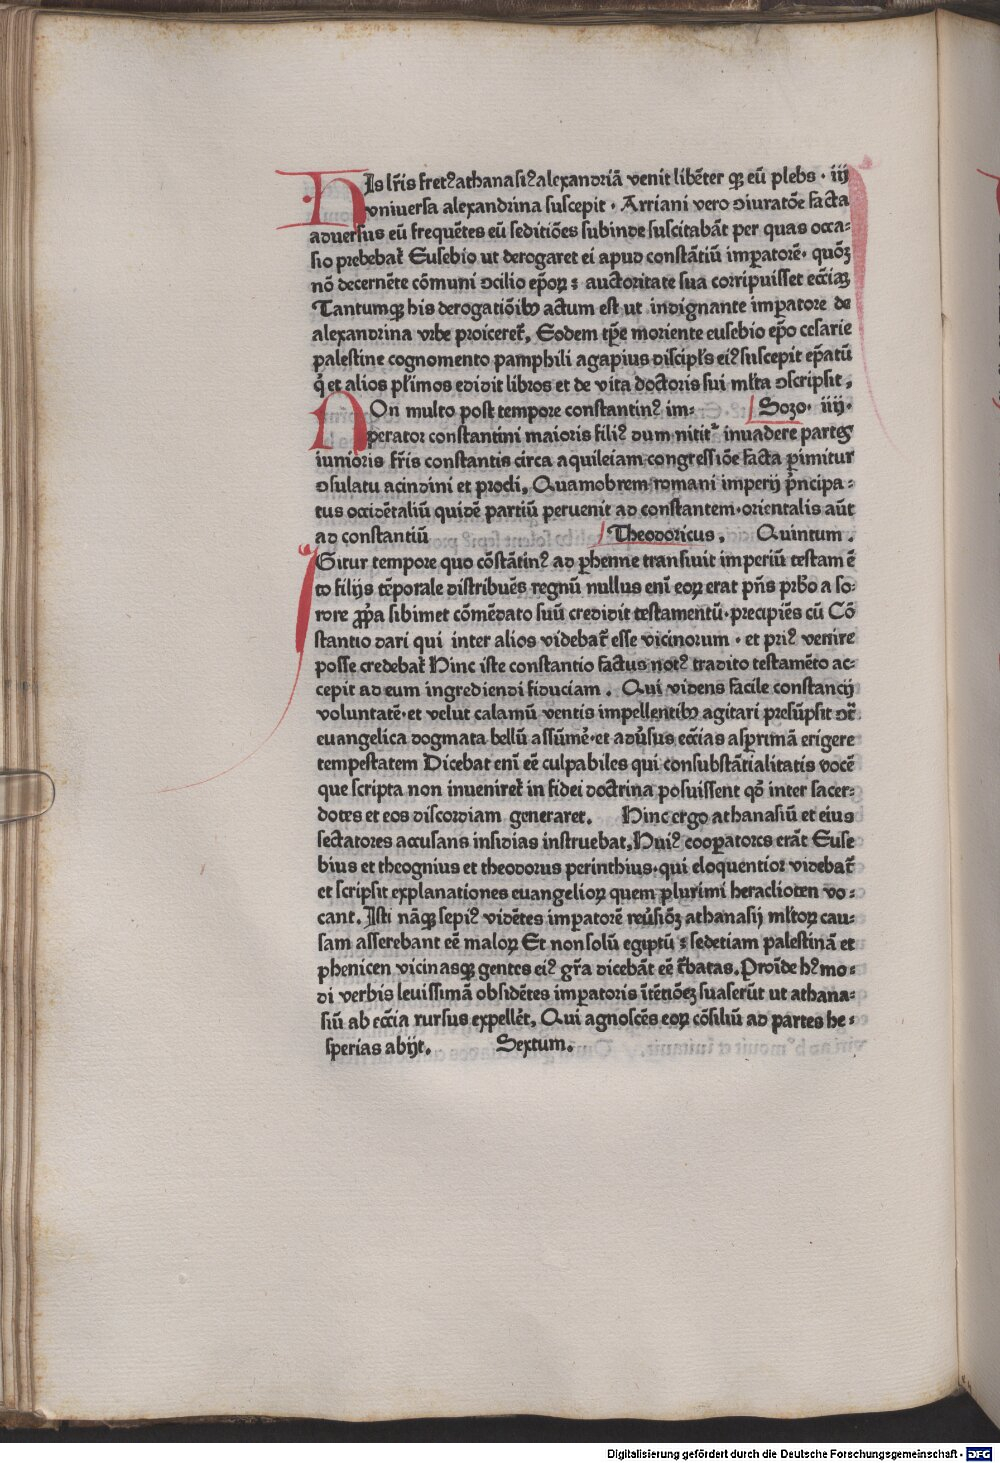 His lr̄is fretꝰ athanasiꝰ alexandriā venit libēter qꝫ eū plebs · iij
vniuersa alexandrina suscepit · Arriani vero ↄiuratōe facta
aduersus eū frequētes eū seditiōes subinde suscitabāt per quas occa⸗
sio prebebat᷑ Eusebio ut derogaret ei apud constātiū imperatorē· quōꝫ
nō decernēte cōmuni ↄcilio ep̄oꝝ : auctoritate sua corripuisset eccīaꝫ
Tantumqꝫ his derogatiōibꝰ actum est ut indignante imperatore de
alexandrina vrbe proiceret᷑, Eodem tp̄e moriente eusebio ep̄o cesarie
palestine cognomento pamphili agapius discipl's eiꝰ suscepit ep̄atū
q̇ et alios pl'imos edidit libros et de vita doctoris sui ml'ta ↄscripsit,
Non multo post tempore constantinꝰ im⸗ Sozo· iiij·
perator constantini maioris filiꝰ dum nitit᷑ inuadere partes
iunioris fr̄is constantis circa aquileiam congressiōe facta ꝑimitur
ↄsulatu acindini et procli, Quamobrem romani imperij pͥncipa⸗
tus occidētaliū quidē partiū peruenit ad constantem·orientalis aūt
ad constantiū Theodoricus, Quintum.
Igitur tempore quo cōstātinꝰ ad ꝑhenne transiuit imperiū testamē
to filijs tēporale distribuēs regnū nullus enī eoꝝ erat pn̄s prb̄o a so⸗
rore ꝓpͥa sibimet cōmēdato suū credidit testamentū·precipiēs cū Cō
stantio dari qui inter alios videbat᷑ esse vicinorum · et priꝰ venire
posse credebat᷑ Hinc iste constantio factus notꝰ tradito testamēto ac⸗
cepit ad eum ingrediendi fiduciam. Qui videns facile constancij
voluntatē·et velut calamū ventis impellentibꝰ agitari presūpsit ↄt᷑
euangelica dogmata bellū assūme̓·et adu̓sus eccīas asꝑrimā erigere
tempestatem Dicebat enī eē culpabiles qui consubstātialitatis vocē
que scripta non inueniret᷑ in fidei doctrina posuissent qō inter sacer⸗
dotes et eos discordiam generaret. Hinc ergo athanasiū et eius
sectatores accusans insidias instruebat, Huiꝰ cooꝑatores erāt Euse
bius et theognius et theodorus perinthius·qui eloquentior videbat᷑
et scripsit explanationes euangelioꝝ quem plurimi heraclioten vo⸗
cant, Isti nāqꝫ sepiꝰ vidētes imperatorē reu̓siōꝫ athanasij ml'toꝝ cau⸗
sam asserebant eē maloꝝ Et non solū egiptū : sed etiam palestinā et
phenicen vicinasqꝫ gentes eiꝰ gr̄a dicebāt eē t᷑batas. Proīde hꝰmo⸗
di verbis leuissimā obsidētes imperatoris ītētiōeꝫ suaserūt ut athana⸗
siū ab eccīa rursus expellēt, Qui agnoscēs eoꝝ cōsiliū ad partes he⸗
sperias abijt, Sextum.
Digitalisierung gefördert durch die Deutsche Forschungsgemeinschaft - DFG